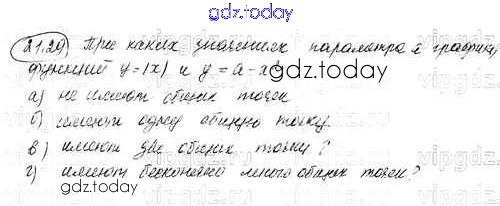 gdz.today
21.20) При каких значениях параметра а графики
функций y=|x| и y = a - x
gdz.today
а) не имеют общих точек
б) имеют одну общую точку
в) имеют две общих точки?
г) имеют бесконечно много общих точек?
gdz.today